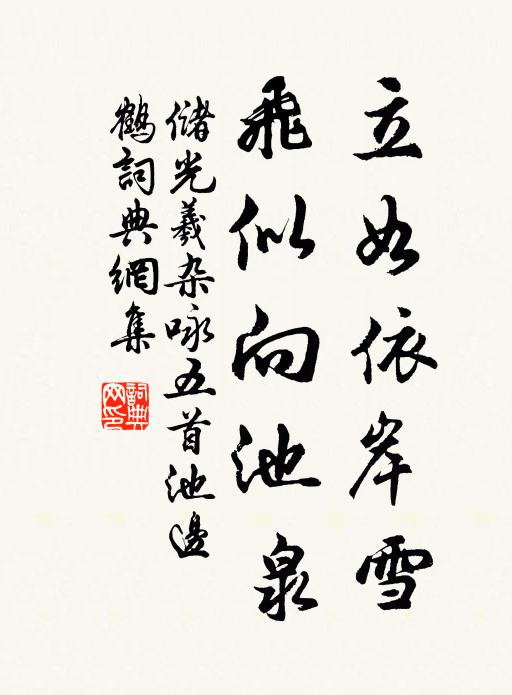 立如依岸雪
飛似向池泉
儲光羲雜咏五首池邊
鶴詞典網集
詞典網印